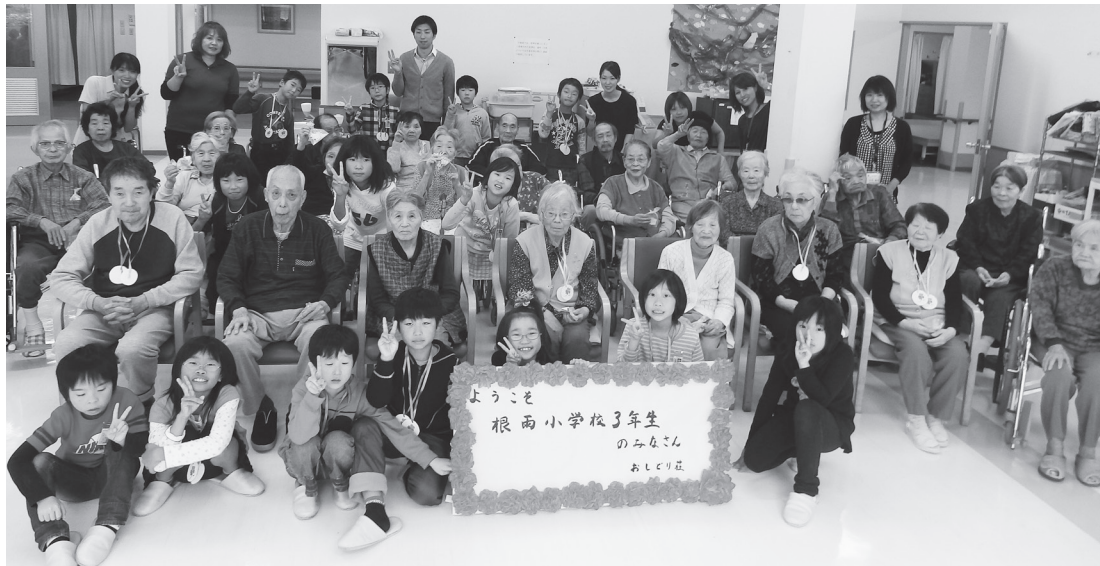 ようこそ
根雨小学校3年生
のみなさん
おしどり荘